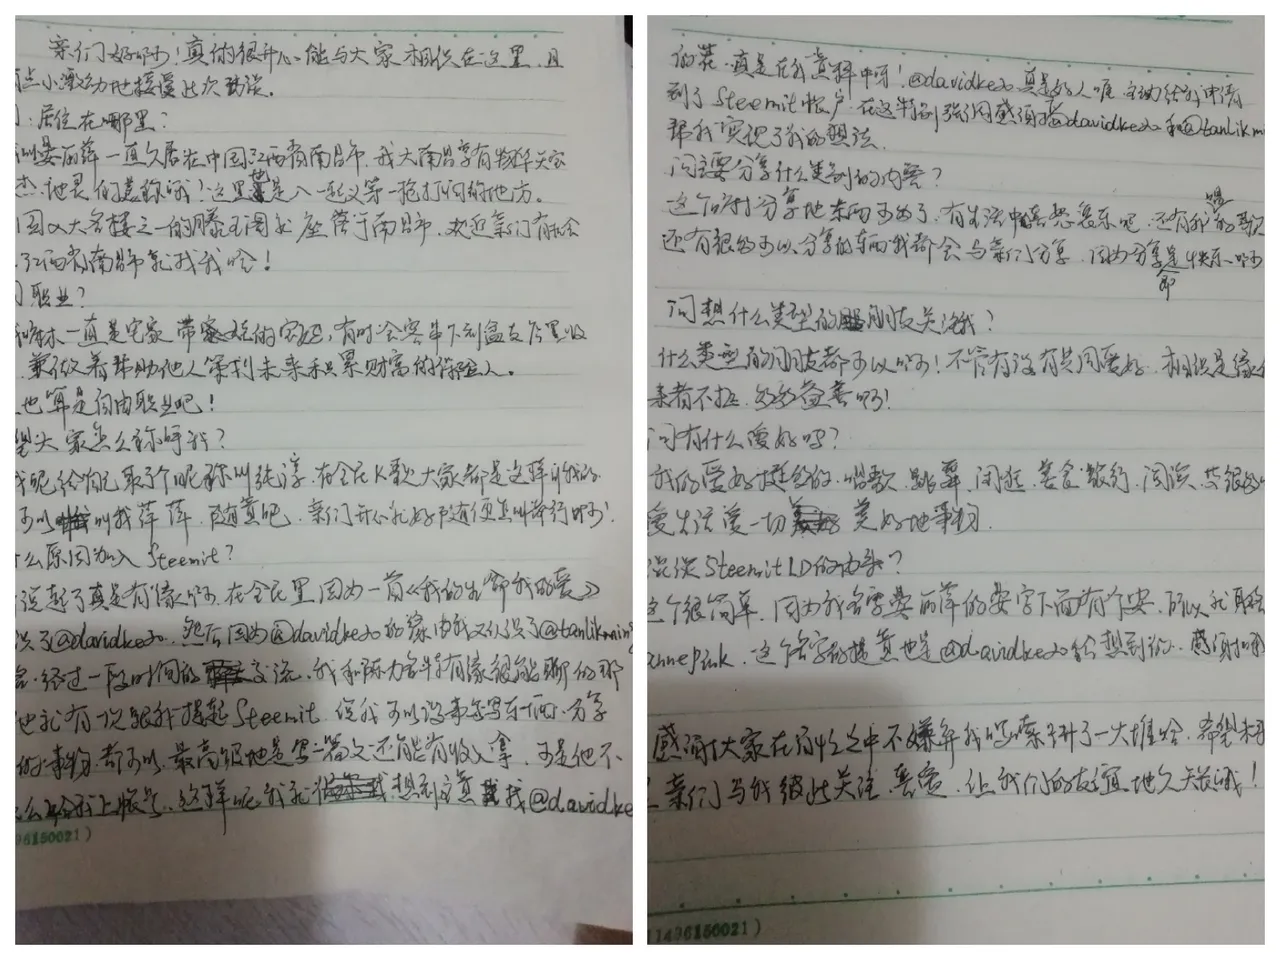 亲们好啊！真的很开心能与大家相识在这里，且
有点小激动地接受此次访谈。
问：居住在哪里？
晏丽萍一直久居在中国江西省南昌市，我大南昌享有物华天宝
杰地灵的美称哦！这里也是八一起义第一枪打响的地方。
国四大名楼之一的滕王阁坐座落于南昌市，欢迎亲们有机会
江西省南昌市来找我哈！
问职业？
一直是宅家带娃的宝妈，有时会客串下到盒支付里收
兼做着帮助他人筹划未来积累财富的保险人。
也算是自由职业吧！
望大家怎么称呼我？
我呢给自己取了个昵称叫纯淳，在全民K歌大家都是这样叫我的
可以叫我萍萍，随意吧，亲们开心就好随便怎叫都行啊！
什么原因加入Steemit？
说起了真是有缘啊，在全民里因为一首《我的生命我的爱》
识了@davidke20，然后因为@davidke20的缘由我又认识了@tanlikming
经过一段时间的交流，我和陈力名特有缘很能聊的那
他就有一次跟我提起Steemit，说我可以没事写写东西，分享
的事物都可以，最高级地是写一篇文还能有收入拿，可是他不
么给我上帐号，这样呢我就想到主意找@davidke
96150021)
的茬，真是在我意料中呀！@davidke20真是好人喔，主动给我申请
到了Steemit帐户，在这特别强调感谢@davidke20和@tanlikmi
帮我实现了我的想法。
问主要分享什么类别的内容？
这个嘛分享地东西可多了，有生活中喜怒哀乐吧，还有我唱的歌
还有很多可以分享的东西我都会与亲们分享，因为分享即是快乐啊
问想什么类型的朋友关注我？
什么类型的朋友都可以啊！不管有没有共同爱好，相识是缘
来者不拒，多多益善哟！
问有什么爱好吗？
我的爱好挺多的，唱歌，跳舞，闲逛，美食，散行，阅读，等很多
爱生活爱一切美好地事物。
说说Steemit ID的由来？
这个很简单，因为我名字晏丽萍的晏字下面有个安，所以我取
annepink，这个名字的提意也是@davidke20给想到的，感谢
感谢大家在百忙之中不嫌弃我啰嗦了一大堆哈，希望未
亲们与我彼此关注，喜爱，让我们的友谊地久天长哦！
11496150021)